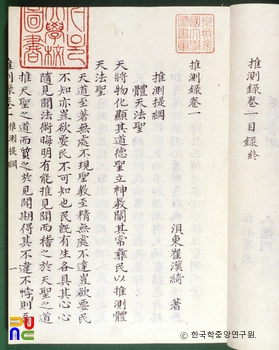 推測錄卷一目錄終
推測錄卷一
浿東崔漢綺 著
推測提綱
體天法聖
天將物化顯其道德聖立神教闡其常彝民以推測體
天法聖
天道至著無處不現聖教至精無處不達豈欲要民
不知亦豈欲要民不可知也民旣有生各具其心心
隨見聞法術晦明有能推見聞而稽之於天聖之道
推天聖之道而質之於見聞期得其不違不悖則
推測錄卷一 推測提綱 一
大學校
圖書
© 한국학중앙연구원